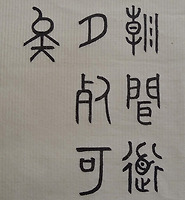 朝聞道
夕死可
矣